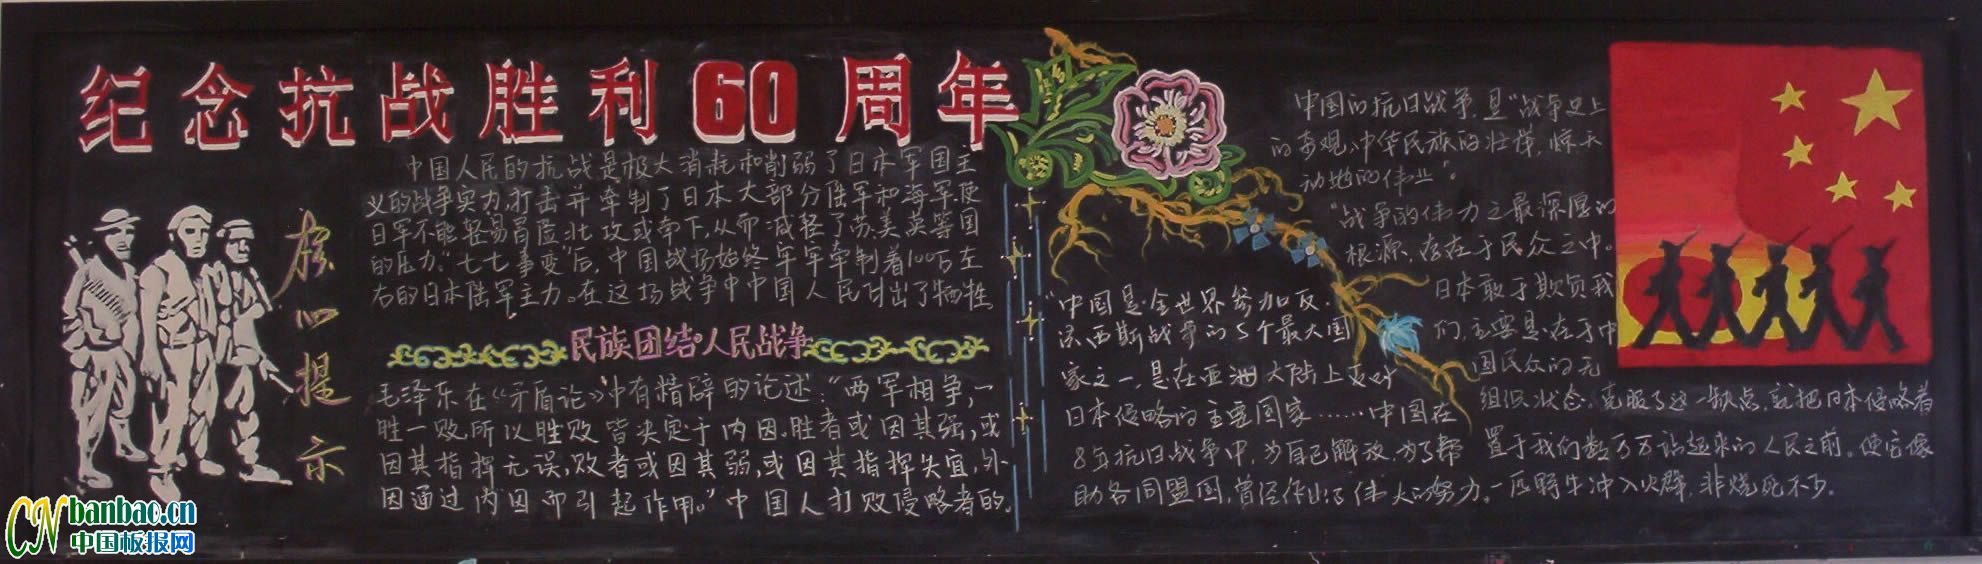 纪念抗战胜利60周年
中国人民的抗战是极大消耗和削弱了日本军国主
义的战争实力,打击并牵制了日本大部分陆军和海军,使
日军不能轻易冒险北攻或南下,从而减轻了苏、美、英等国
的压力。“七七事变”后,中国战场始终牢牢牵制着100万左
右的日本陆军主力。在这场战争中中国人民付出了牺牲
民族团结·人民战争
毛泽东在《矛盾论》中有精辟的论述:“两军相争,一
胜一败,所以胜败皆决定于内因。胜者或因其强,或
因其指挥无误,败者或因其弱,或因其指挥失宜,外
因通过内因而引起作用。”中国人打败侵略者的。
心提示
“中国是全世界参加反
法西斯战争的5个最大国
家之一,是在亚洲大陆上反对
日本侵略的主要国家……中国在
8年抗日战争中,为自己解放,为了帮
助各同盟国,曾经作出了伟大的努力。
中国的抗日战争,是“战争史上
的奇观,中华民族的壮举,惊天
动地的伟业”。
“战争的伟力之最深厚的
根源,存在于民众之中。
日本敢于欺负我
们,主要是在于中
国民众的无
组织状态,克服了这一缺点,就把日本侵略者
置于我们数万万站起来的人民之前。使它像
一匹野牛冲入火群,非烧死不了。
CN banbao.cn
中国板报网